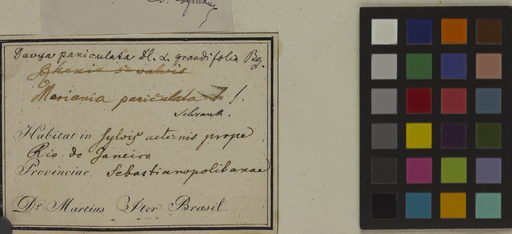 Davya paniculata Dl. α grandifolia Bg.
Meriania paniculata !.
Schrank.
Habitat in sylvis aeternis prope
Rio de Janeiro
Provinciae Sebastianopolitanae
Dr. Martius Iter Brasil.